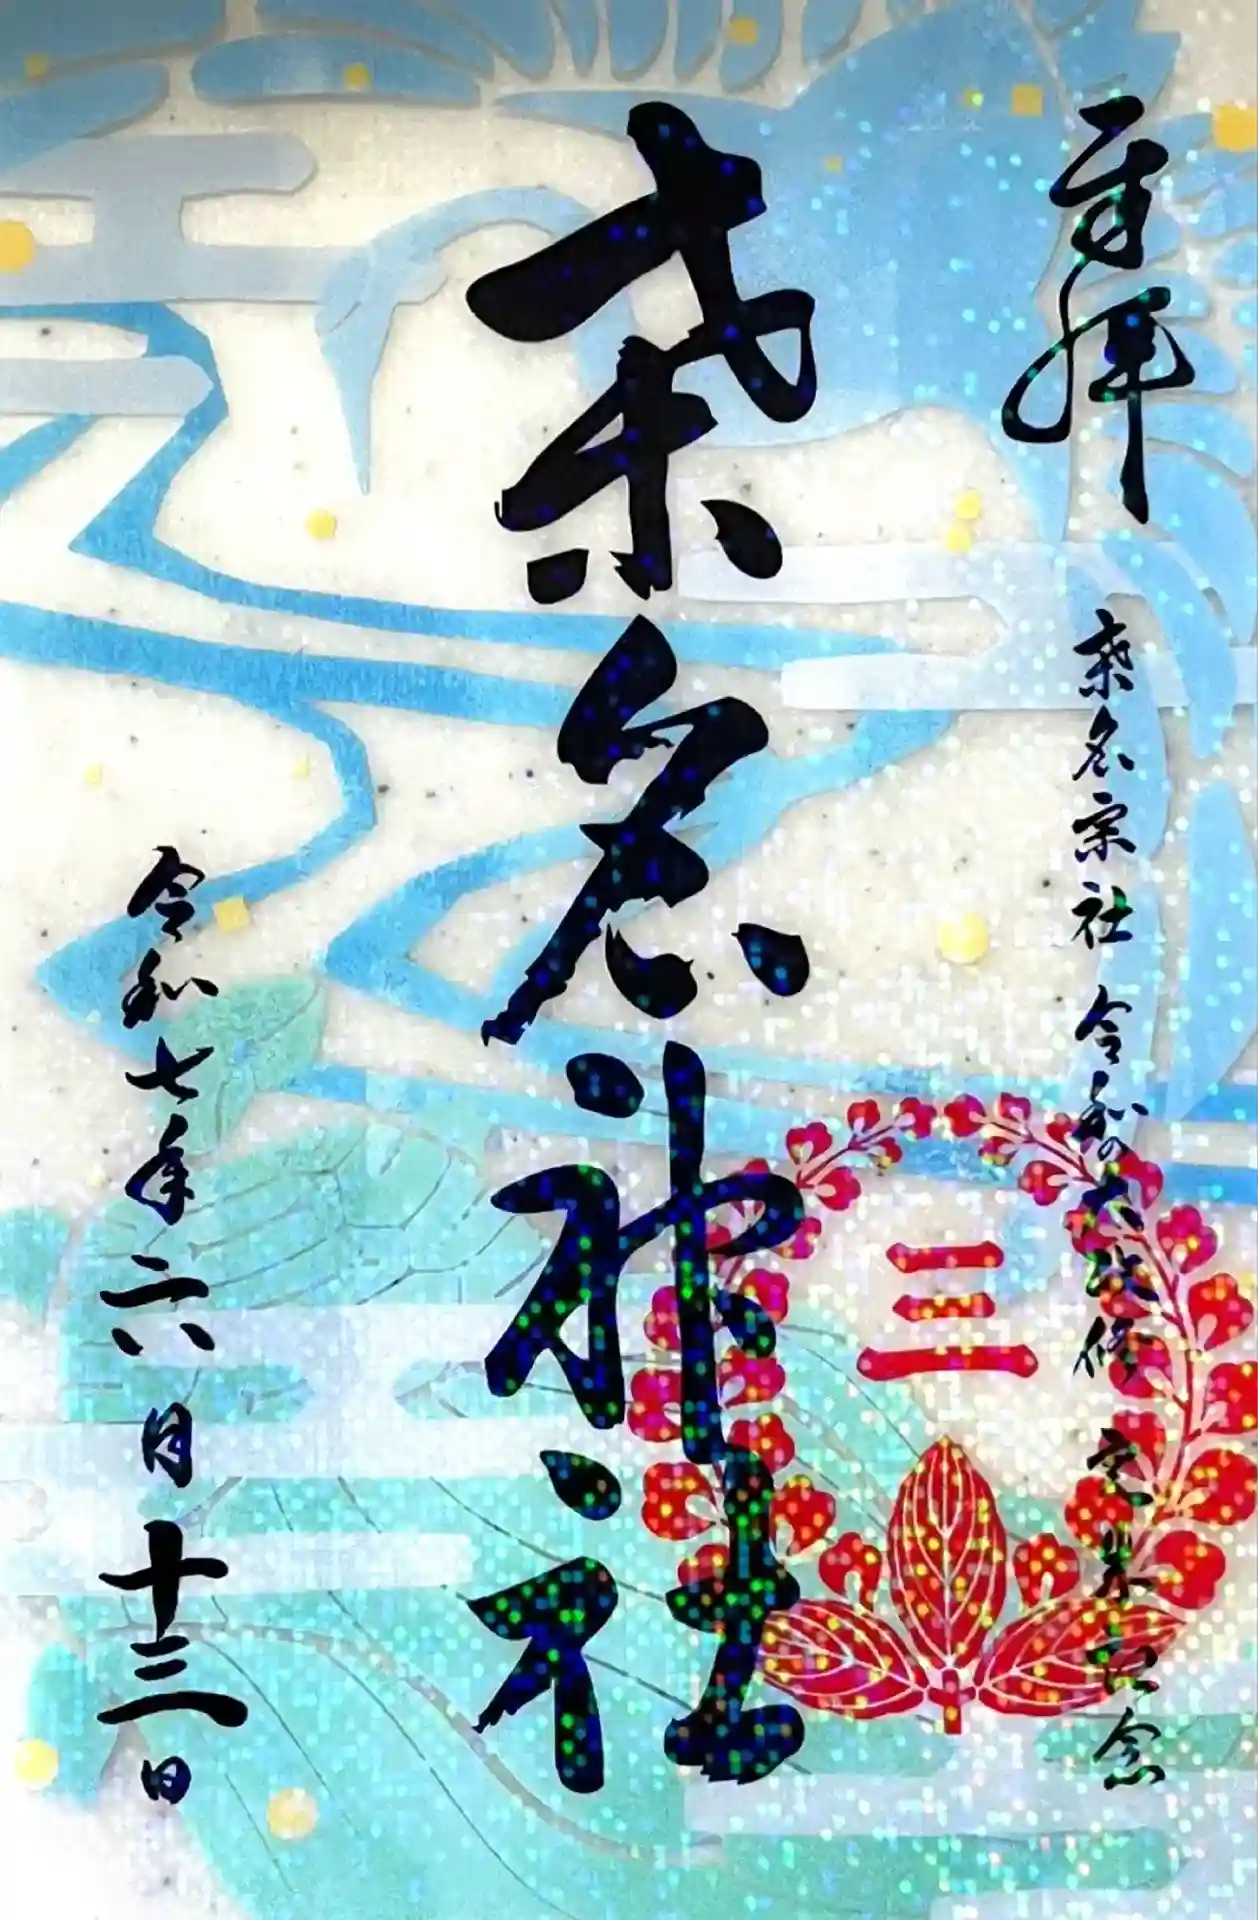 奉拝
桑名宗社 令和の大改修 記念
三
桑名神社
令和七年六月十三日